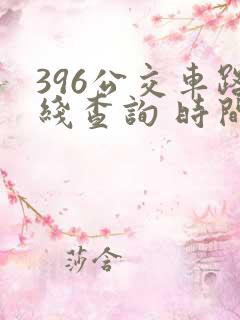 396公交車路
綫查詢 時間
莎含